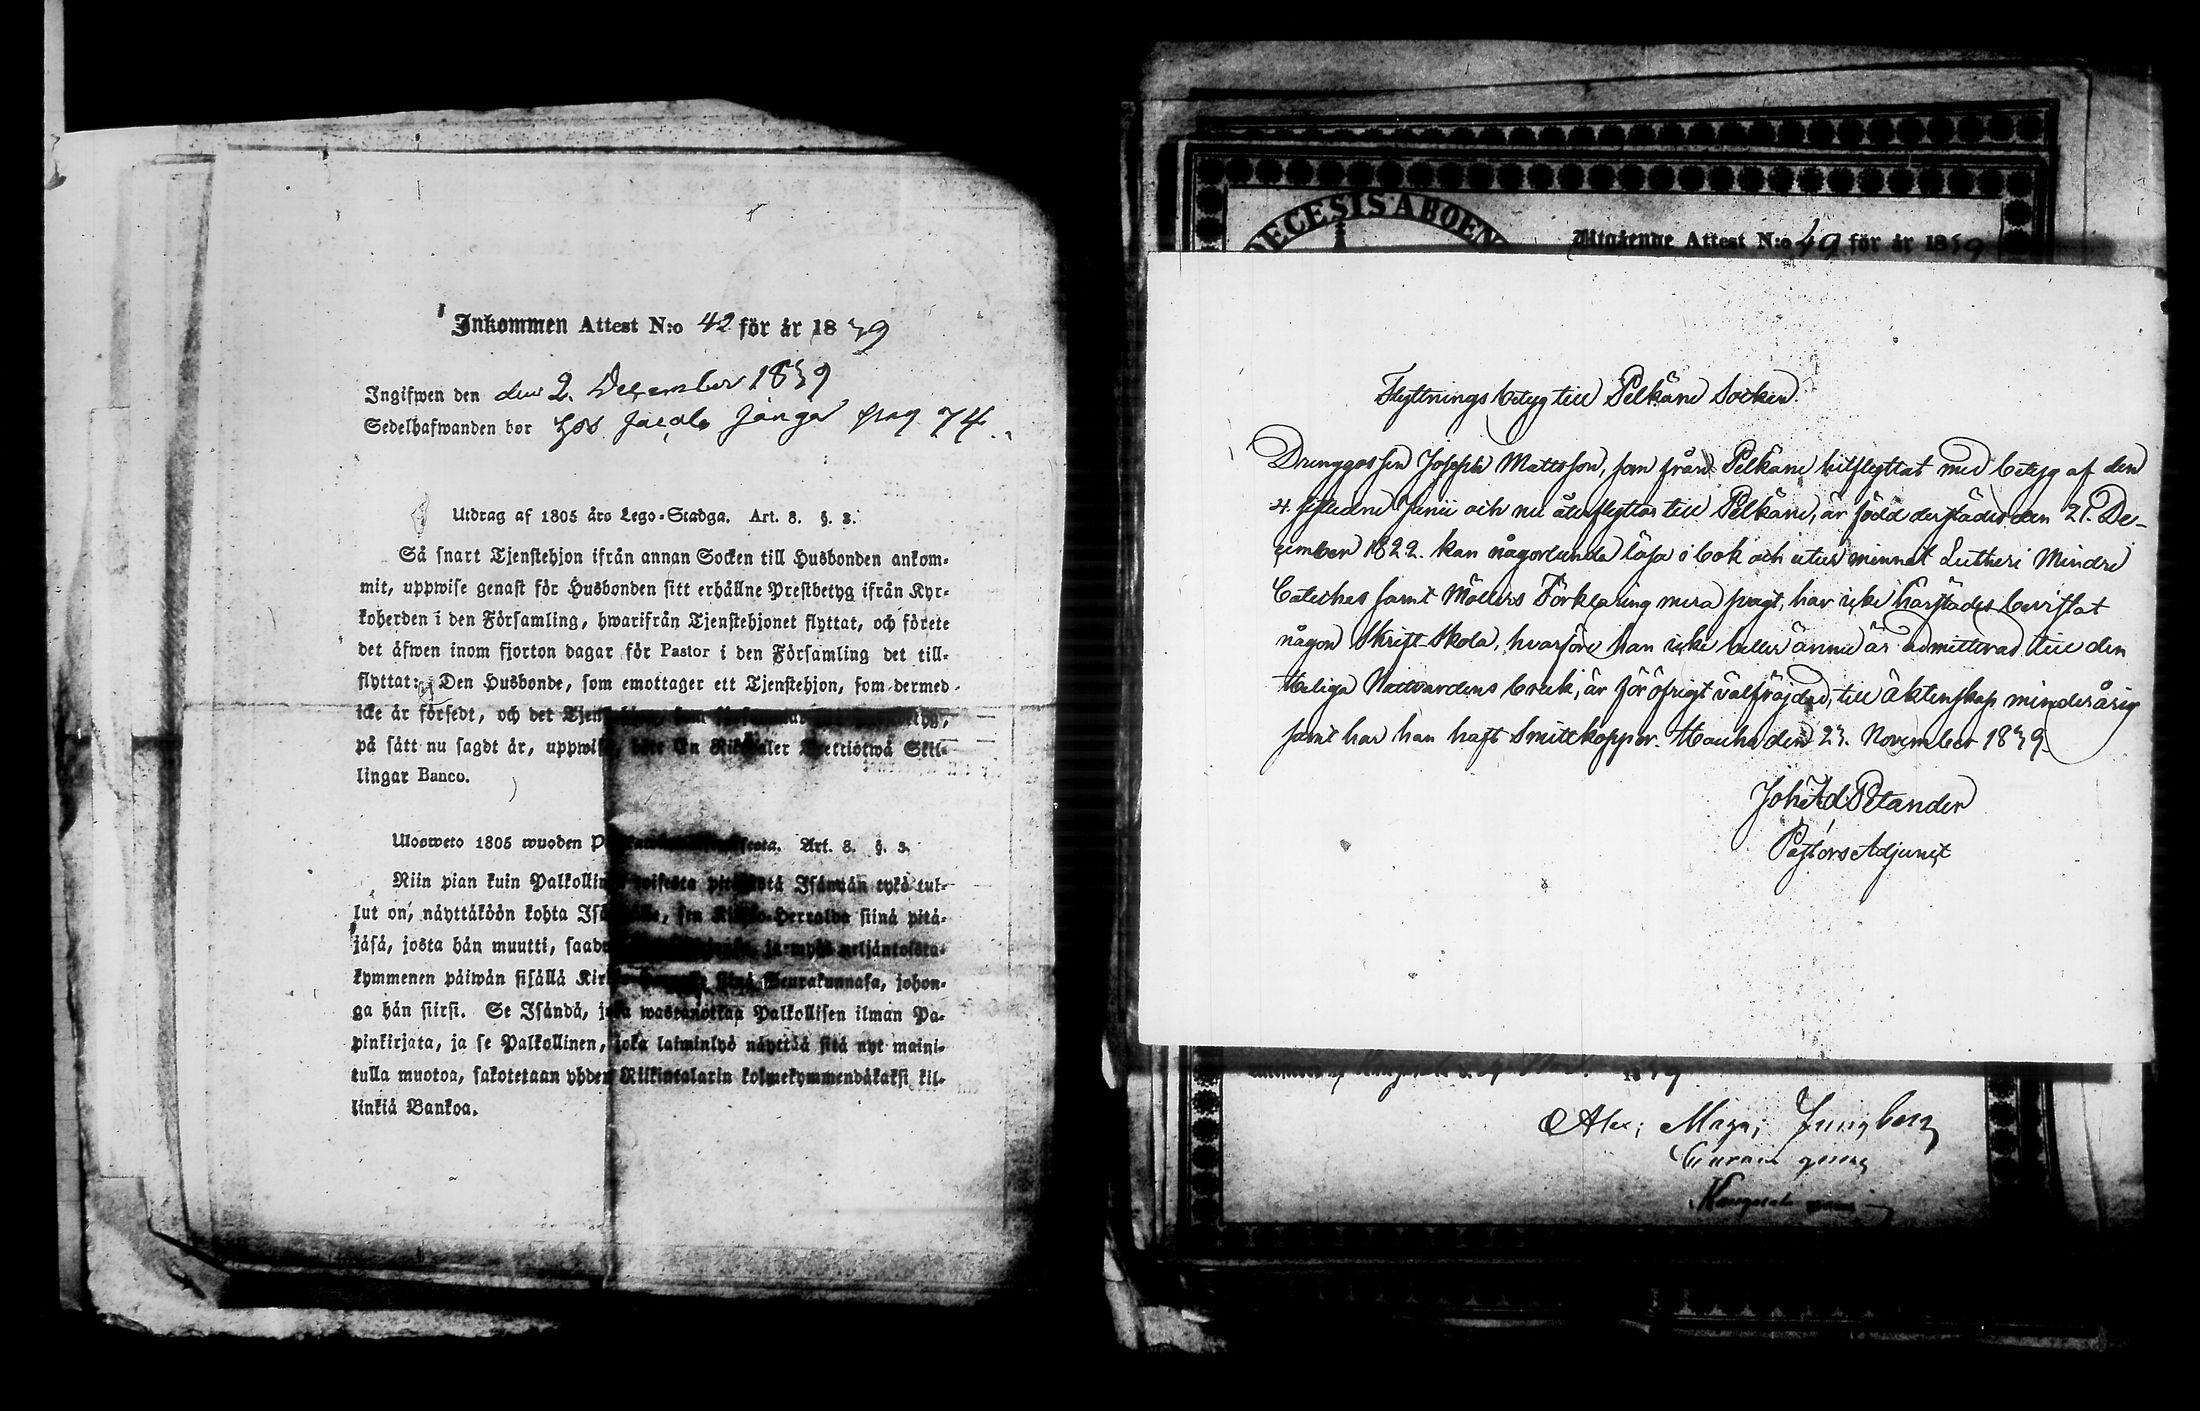 Inkommen Attest N:o 42 för år 1839
Ingifwen den den 2. December 1839
Sedelhafwanden bor hos Jacob Jänger pag 74.
Utdrag af 1805 års Lego-Stadga. Art. 8. §. 3.
Så snart Tjenstehjon ifrån annan Socken till Husbonden ankom-
mit, uppwise genast för Husbonden sitt erhållne Prestbetyg ifrån Kyr-
koherden i den Församling, hwarifrån Tjenstehjonet flyttat, och förete
det äfwen inom fjorton dagar för Pastor i den Församling det till-
flyttat: Den Husbonde, som emottager ett Tjenstehjon, som dermed
icke är försedt, och det
på sätt nu sagdt är, uppwisa, böte En Riksdaler Trettiotwå Skil-
lingar Banco.
Ulosweto 1805 wuoden Art. 8. §. 3.
Niin pian kuin Palkollinen toisesta pitäjästä Isännän tykö tul-
lut on, näyttäköön kohta Isännälle, sen Kirkko-Herralda siinä pitä-
jäsä, josta hän muutti, ja myös neljäntoista-
kymmenen päiwän sisällä siinä Seurakunnasa, johon-
ga hän siirsi. Se Isändä, joka wastanottaa Palkollisen ilman Pa-
pinkirjata, ja se Palkollinen, joka laiminlyö näyttää sitä nyt maini-
tulla muotoa, sakotetaan yhden Riikintalarin kolmekymmendäkaksi kil-
linkiä Bankoa.
DECESIS ABOEN
Utgående Attest N:o 49 för år 1839
Flyttningsbetyg till Pelkäne Socken.
Drenggossen Joseph Mattsson, som från Pelkäne hitflyttat med betyg af den
4 sistledne Junii och nu återflyttar till Pelkäne, är född derstädes den 21. De-
cember 1822. kan någorlunda läsa i bok och utur minnet Lutheri Mindre
Cateches samt Möllers Förklaring mera svagt, har icke härstädes bevistat
någon Skrift-Skola, hvarföre han icke heller ännu är admitterad till den
Heliga Nattvardens bruk, är för öfrigt välfrejdad, till äktenskap minderårig
samt har han haft Smittkoppor. Hauho den 23. November 1839.
Joh: Ad Petander
Pastors Adjunct
1839
Alex: Magn: Ljungberg